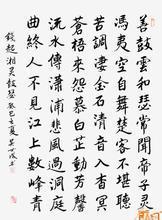 善鼓雲和瑟常聞帝子靈
馮夷空自舞楚客不堪聽
苦調淒金石清音入杳冥
蒼梧來怨慕白芷動芳馨
流水傳瀟浦悲風過洞庭
曲終人不見江上數峰青
錢起湘灵鼓瑟癸巳夏